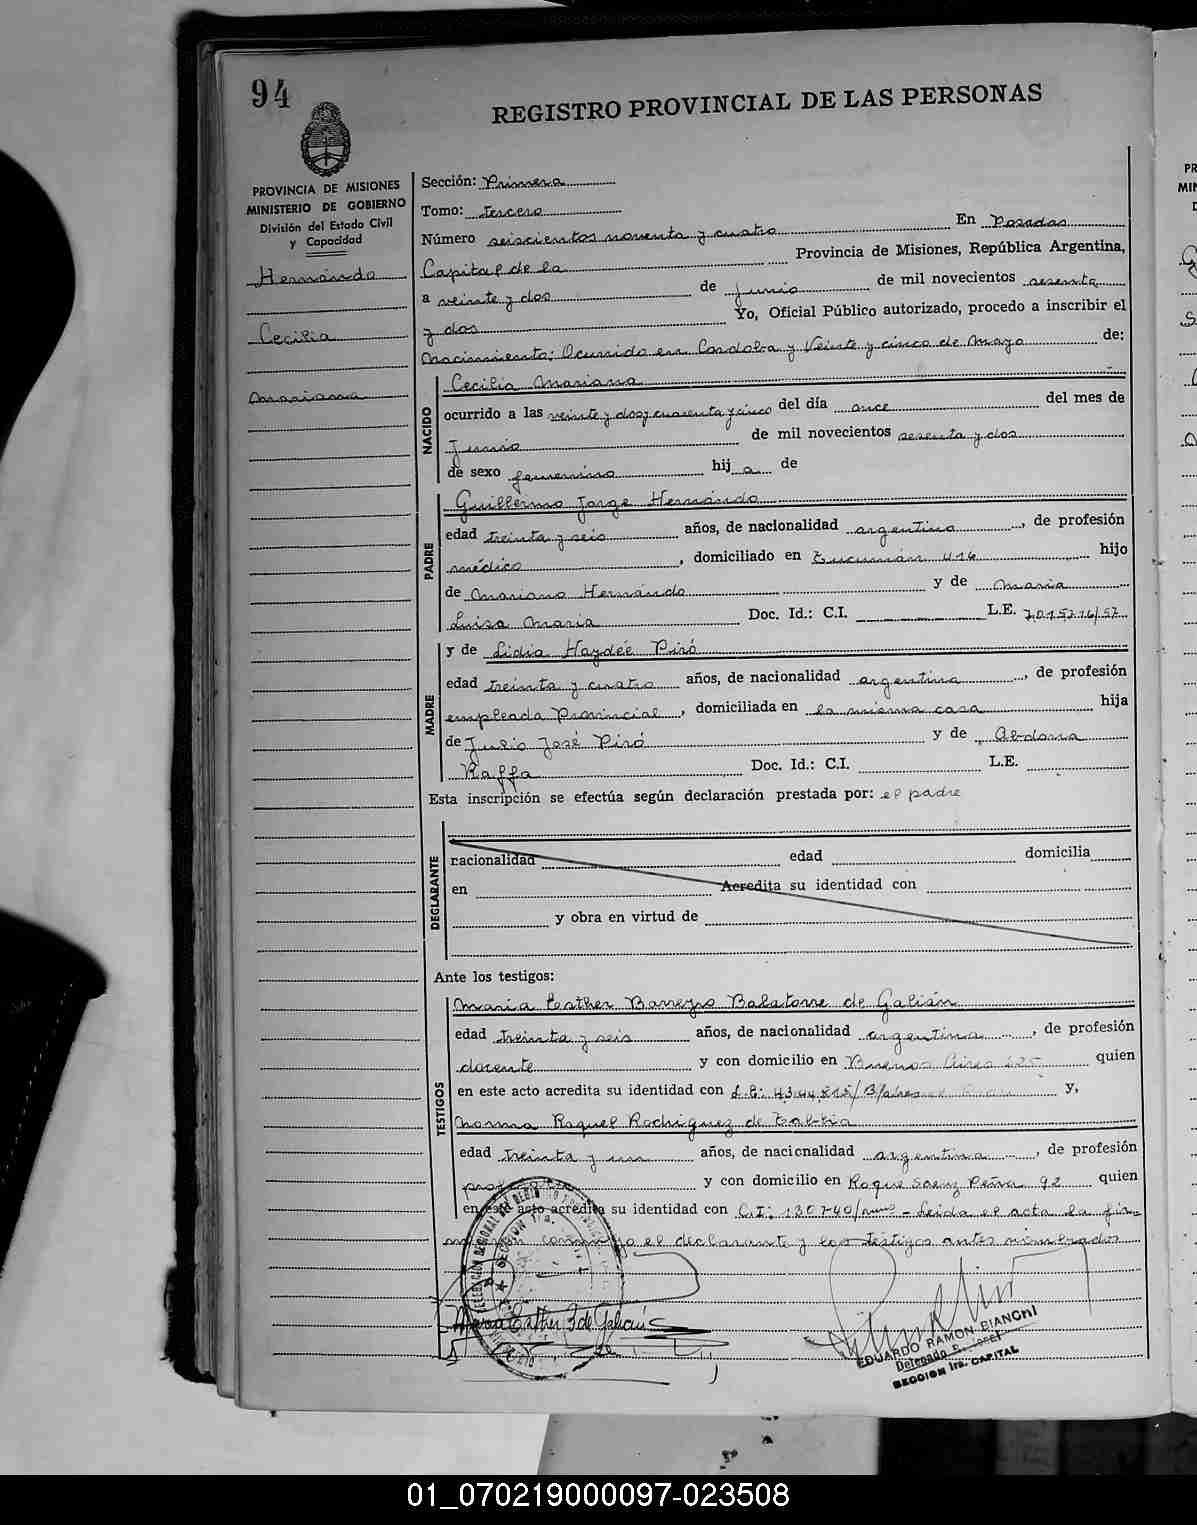 94
REGISTRO PROVINCIAL DE LAS PERSONAS
PROVINCIA DE MISIONES
MINISTERIO DE GOBIERNO
División del Estado Civil
y Capacidad
Hernándo
Cecilia
Mariana
Sección: Primera
Tomo: tercero
Número seiscientos noventa y cuatro En Posadas
Capital de la Provincia de Misiones, República Argentina,
a veinte y dos de Junio de mil novecientos sesenta
y dos Yo, Oficial Público autorizado, procedo a inscribir el
nacimiento; Ocurrido en Cordoba y Veinte y cinco de Mayo de:
NACIDO
Cecilia Mariana
ocurrido a las veinte y dos y cuarenta y cinco del día once del mes de
Junio de mil novecientos sesenta y dos
de sexo femenino hij a de
PADRE
Guillermo Jorge Hernándo
edad treinta y seis años, de nacionalidad argentina, de profesión
médico, domiciliado en Tucumán 416 hijo
de Mariano Hernándo y de Maria
Luisa Maria Doc. Id.: C.I. L.E. 7.015.716/57
MADRE
y de Lidia Haydée Piró
edad treinta y cuatro años, de nacionalidad argentina, de profesión
empleada Provincial, domiciliada en la misma casa hija
de Julio José Piró y de Abdona
Raffa Doc. Id.: C.I. L.E.
Esta inscripción se efectúa según declaración prestada por: el padre
DECLARANTE
nacionalidad edad domicilia
en Acredita su identidad con
y obra en virtud de
Ante los testigos:
TESTIGOS
María Esther Barreyro Balatorre de Galián
edad treinta y seis años, de nacionalidad argentina, de profesión
docente y con domicilio en Buenos Aires 625 quien
en este acto acredita su identidad con L.E: y,
Norma Raquel Rodriguez de
edad treinta y un años, de nacionalidad argentina, de profesión
y con domicilio en Roque Saenz Peña 92 quien
en este acto acredita su identidad con C.I: 130740/mnes - Leida el acta la fir-
conmigo el declarante y los testigos antes nombrados
SECCION 1ra.
María Esther B de Galián
EDUARDO RAMON BIANCHI
Delegado
SECCION 1ra. CAPITAL
01_070219000097-023508